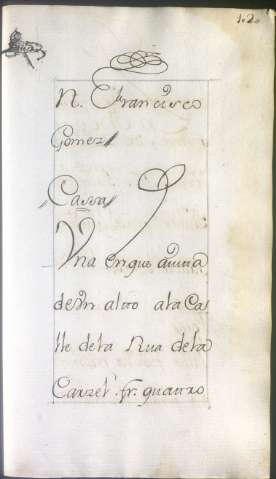 120
N. Francisco
Gomez //
// Cassa
Vna en que avita
de Vn altto a la Ca=
lle de la Rua de la
Carzel. fr. quattro